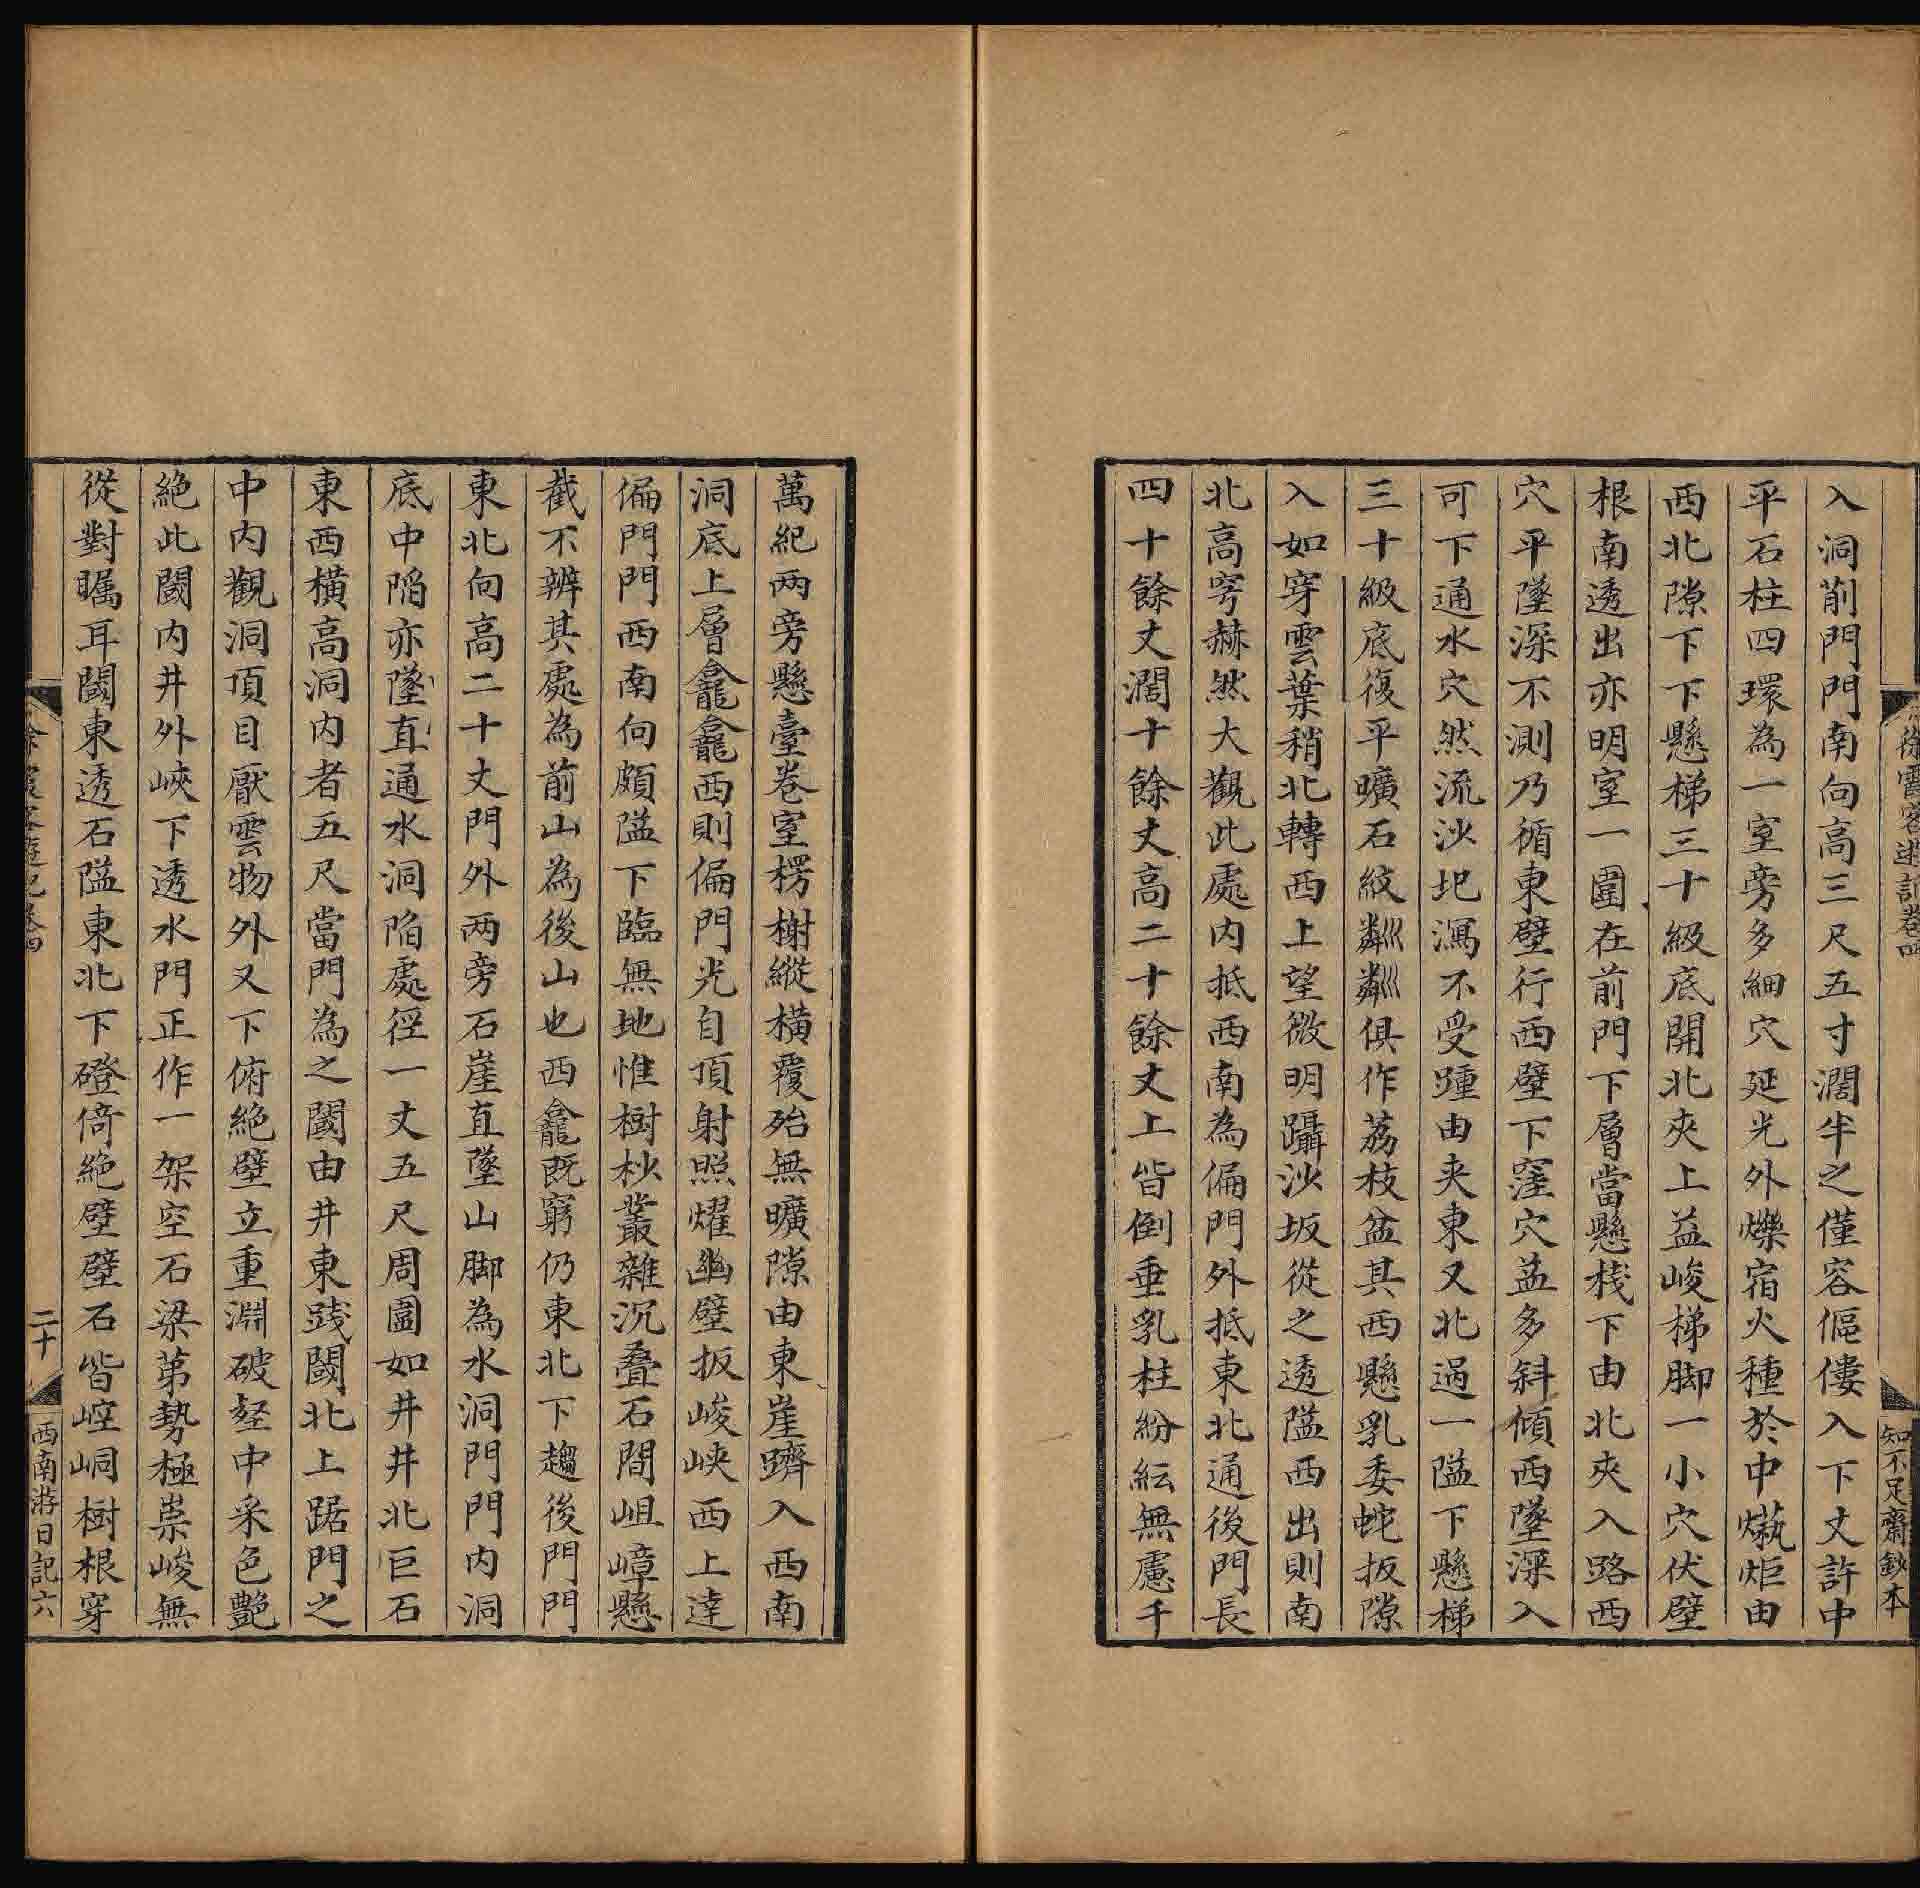 徐霞客遊記卷四
知不足齋鈔本
入洞前門門南向高三尺五寸濶半之僅容傴僂入下丈許中
平石柱四環為一室旁多細穴延光外爍宿火種於中爇炬由
西北隙下下懸梯三十級底開北夾上益峻梯脚一小穴伏壁
根南透出亦明室一圍在前門下層當懸棧下由北夾入路西
穴平墜深不測乃循東壁行西壁下窪穴益多斜傾西墜深入
可下通水穴然流沙圯瀉不受踵由夾東又北過一隘下懸梯
三十級底復平曠石紋粼粼俱作荔枝盆其西懸乳委蛇扳隙
入如穿雲葉稍北轉西上望微明躡沙坂從之透隘西出則南
北高穹赫然大觀此處內抵西南為偏門外抵東北通後門長
四十餘丈濶十餘丈高二十餘丈上皆倒垂乳柱紛紜無慮千
萬紀兩旁懸臺巻室楞榭縱橫覆殆無曠隙由東崖躋入西南
洞底上層龕龕西則偏門光自頂射照燿幽壁扳峻峽西上達
偏門門西南向頗隘下臨無地惟樹杪叢雜沉疊石間岨嶂懸
截不辨其處為前山為後山也西龕既窮仍東北下趨後門門
東北向高二十丈門外兩旁石崖直墜山脚為水洞門門內洞
底中陷亦墜直通水洞陷處徑一丈五尺周圍如井井北巨石
東西橫高洞內者五尺當門為之閾由井東踐閾北上踞門之
中內觀洞頂目厭雲物外又下俯絶壁立重淵破壑中采色艷
絶此閾內井外峽下透水門正作一架空石梁第勢極崇峻無
從對矚耳閾東透石隘東北下磴倚絶壁壁石皆崆峒樹根穿
徐霞客遊記卷四
二十
西南游日記六